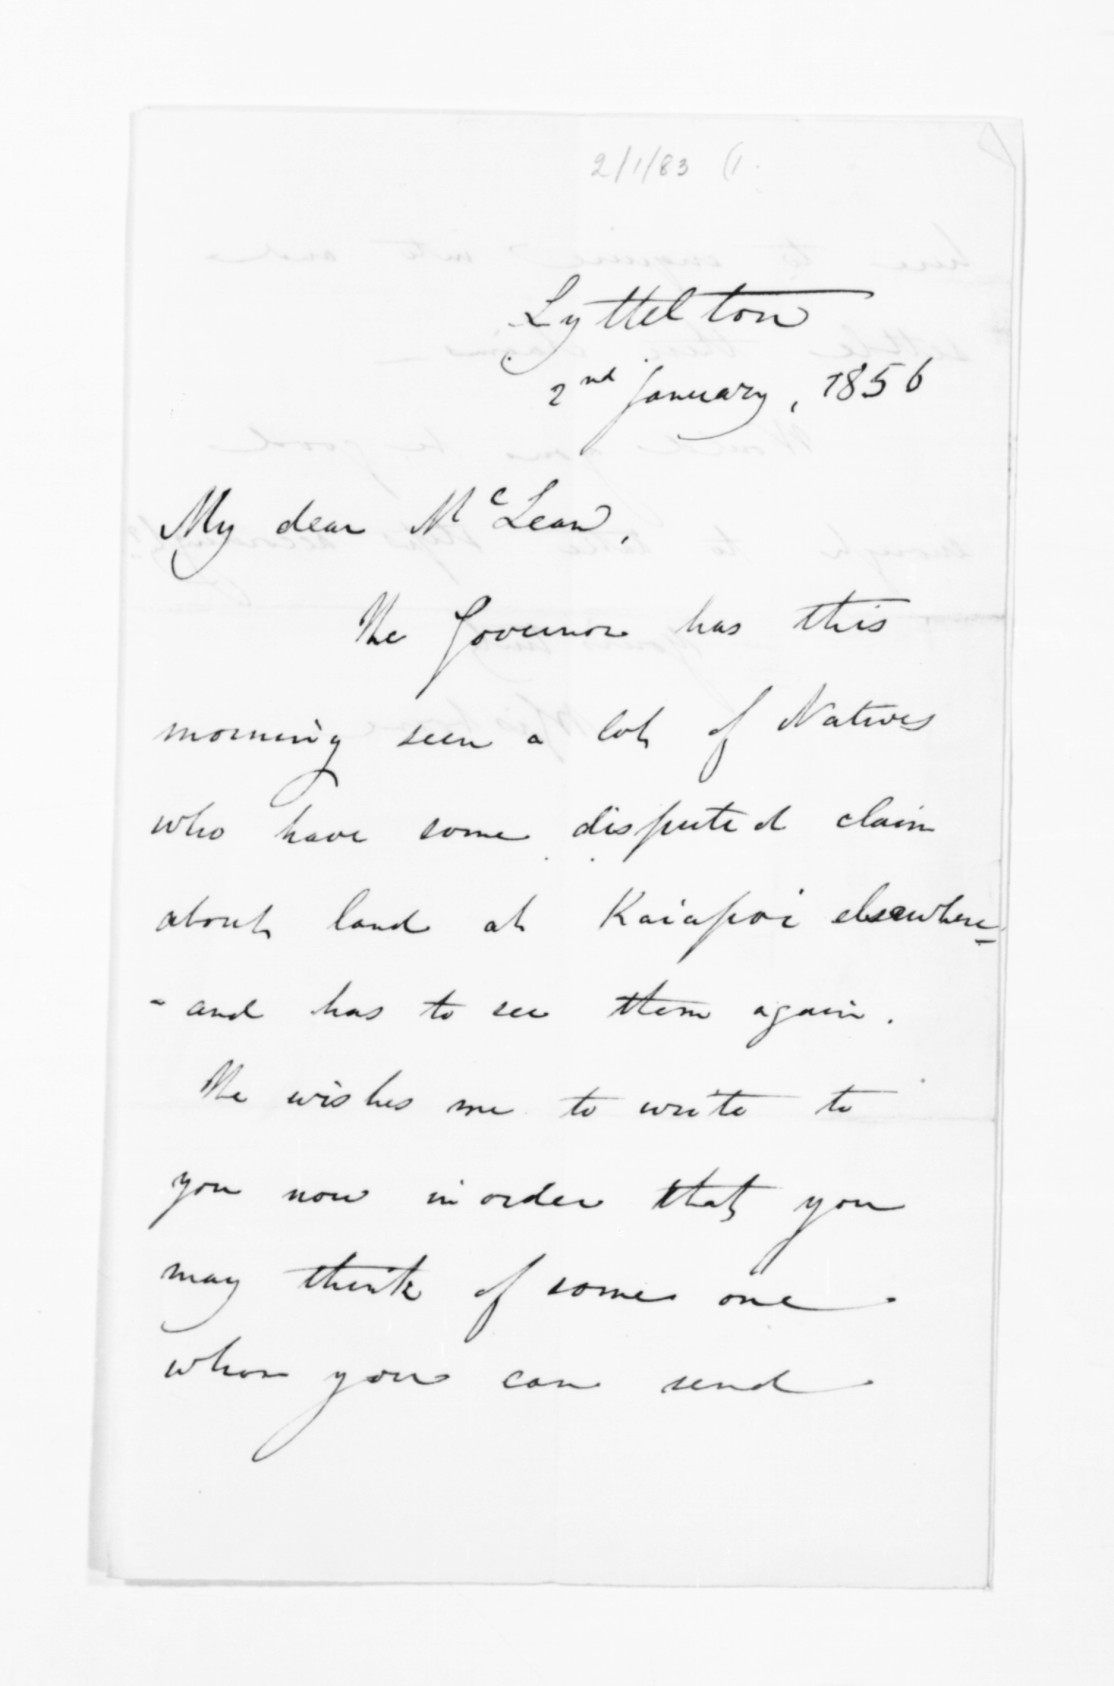 2/1/83 (1.
Lyttelton
2nd January, 1856
My dear McLean,
The Governor has this
morning seen a lot of Natives
who have some disputed claim
about land at Kaiapoi elsewhere
- and has to see them again.
He wishes me to write to
you now in order that you
may think of some one
whom you can send